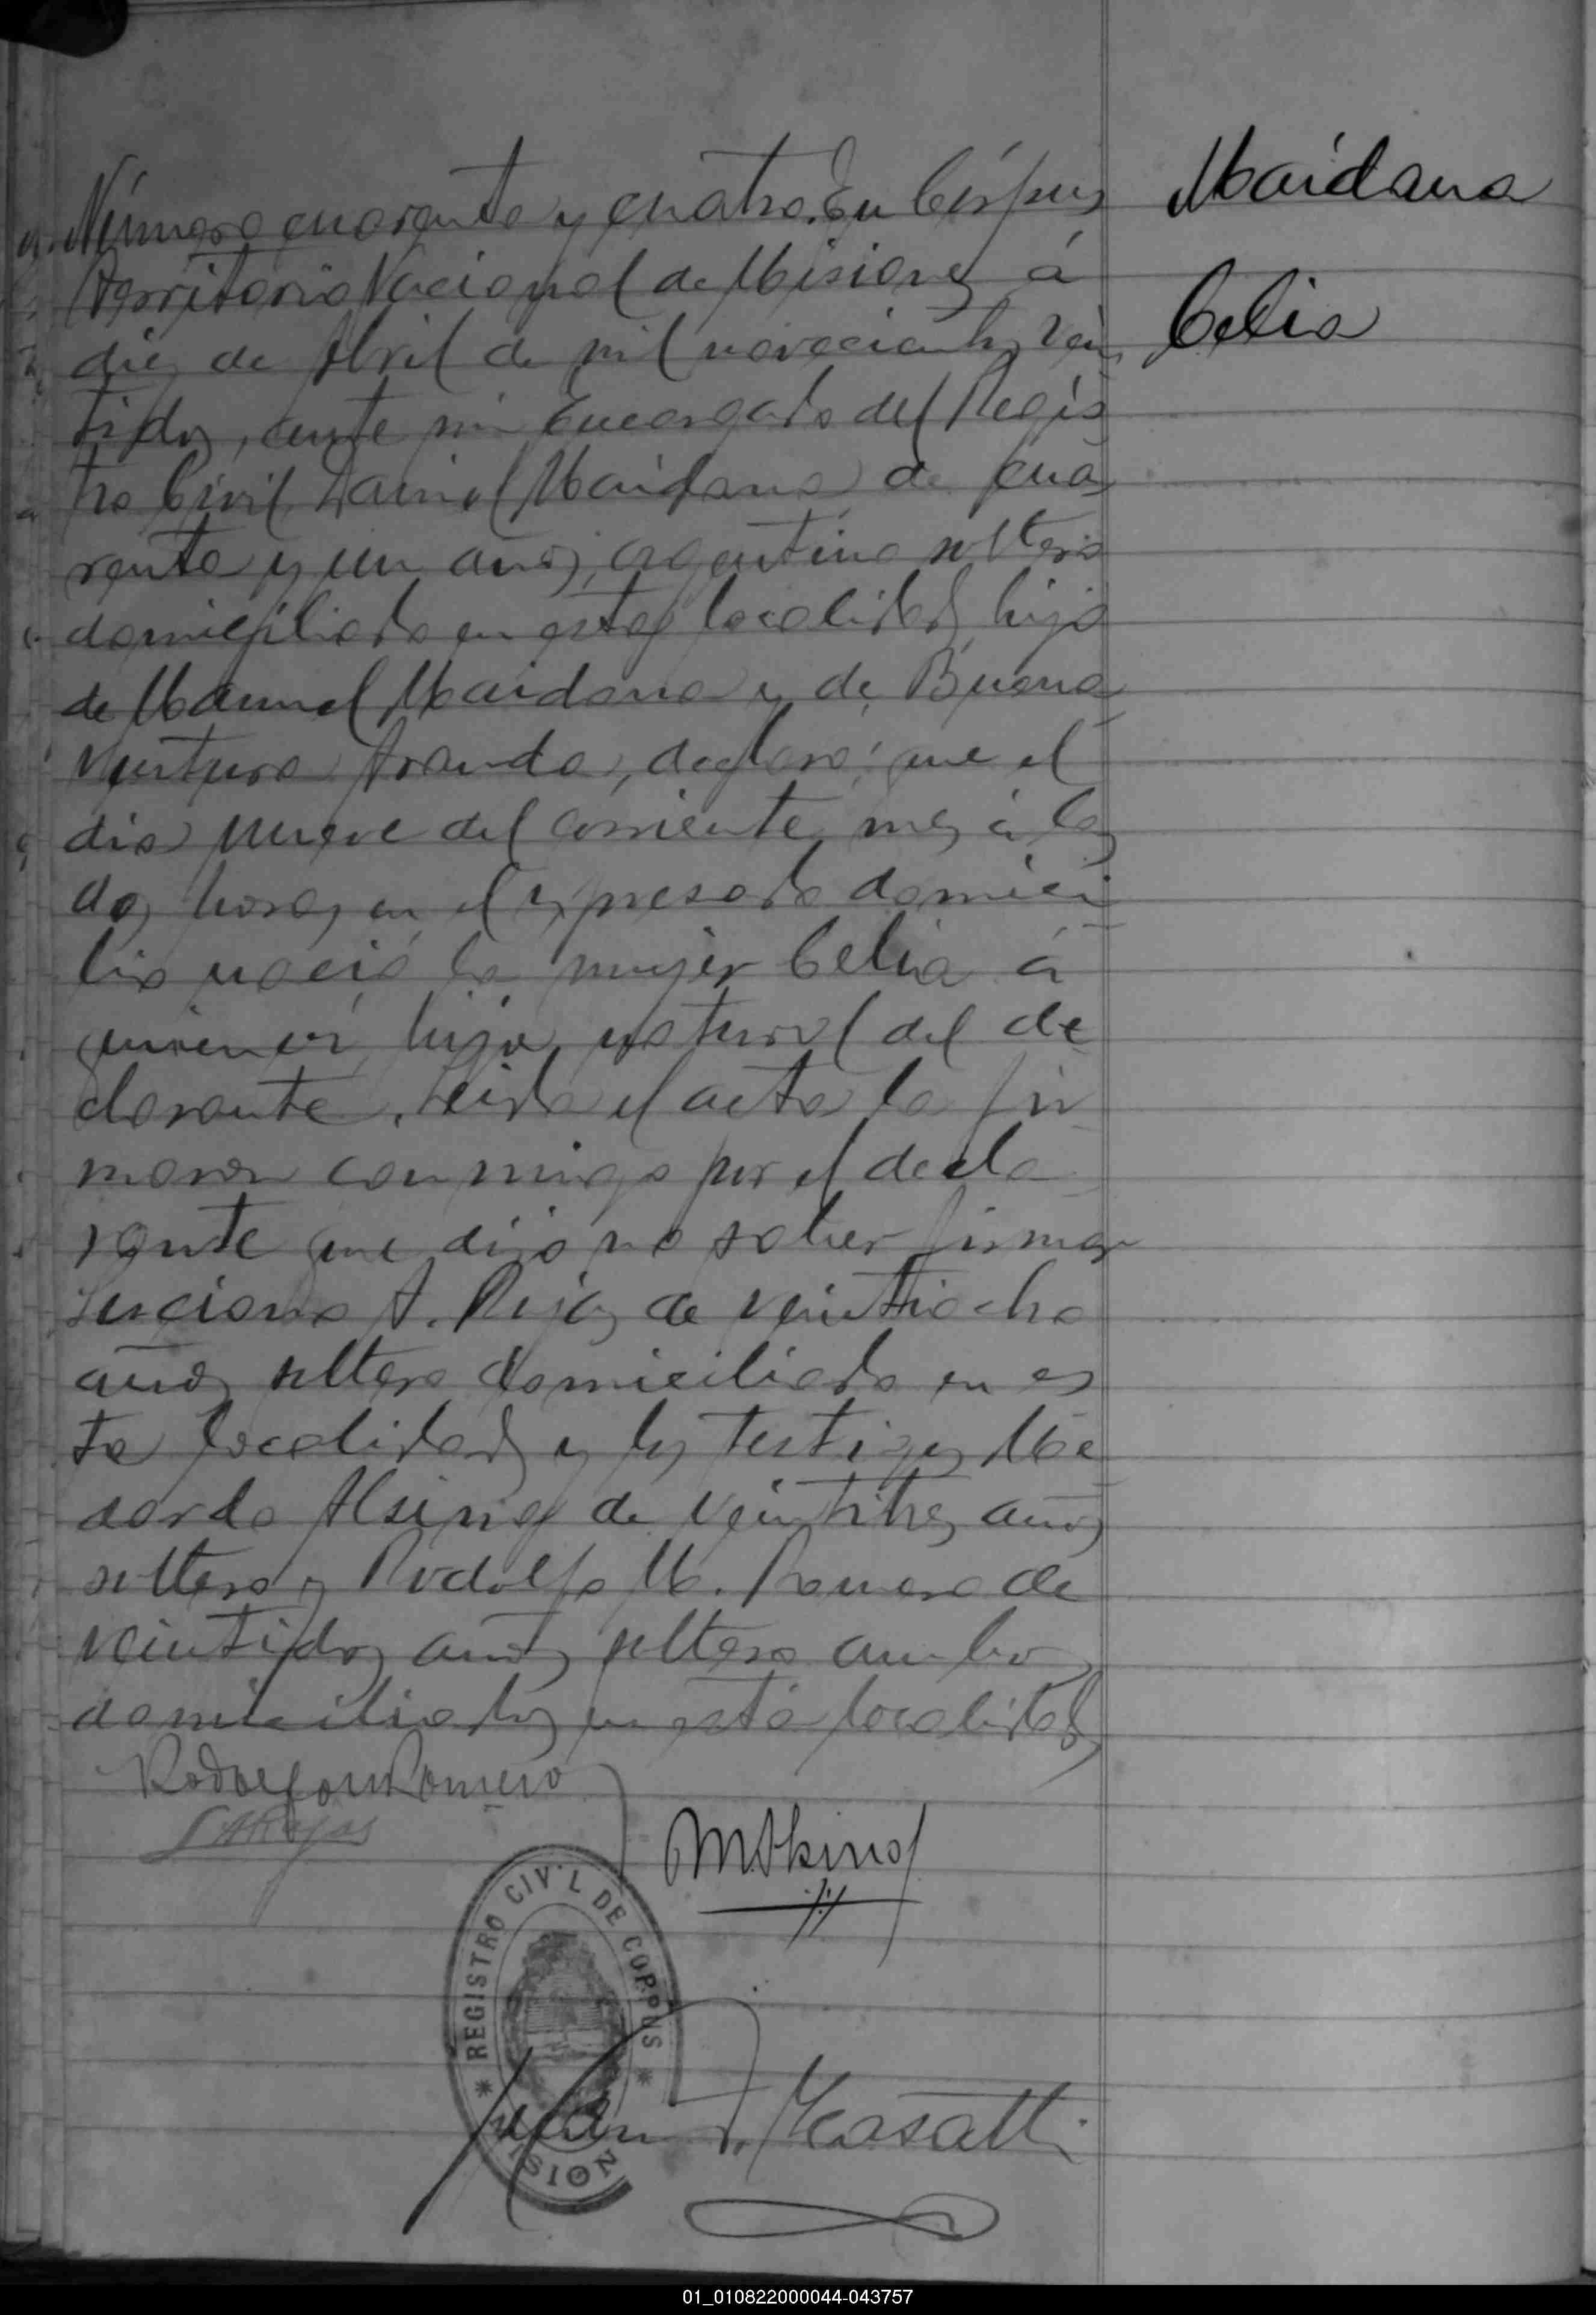 Número cuarenta y cuatro. En Córpus
Maidana
Territorio Nacional de Misiones á
Celia
diez de Abril de mil novecientos vein
tidos, ante mi Encargado del Regis
tro Civil, Daniel Maidana de cua
renta y un años, argentino soltero
domiciliado en esta localidad, hijo
de Manuel Maidana y de Buena
Ventura Aranda, declaró: que el
dia nueve del corriente mes á las
dos horas en el expresado domici
lio nació la mujer Celia á
quien vi, hija natural del de
clarante. Leida el acta la fir
maron conmigo por el decla
rante que dijo no saber firmar
Luciano A. Rojas de veintiocho
años soltero domiciliado en es
ta localidad y los testigos Me
dardo Alsina de veintitres años
soltero y Rodolfo M. Romero de
veintidos años soltero ambos
domiciliados en esta localidad
Rodolfo M Romero
LARojas
MAlsina
REGISTRO CIVIL DE CORPUS
* MISIONES *
Juan Casatti
01_010822000044-043757